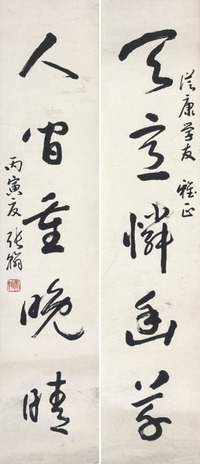 康学友 雅正
天意憐幽草
人間重晚晴
丙寅夏 張